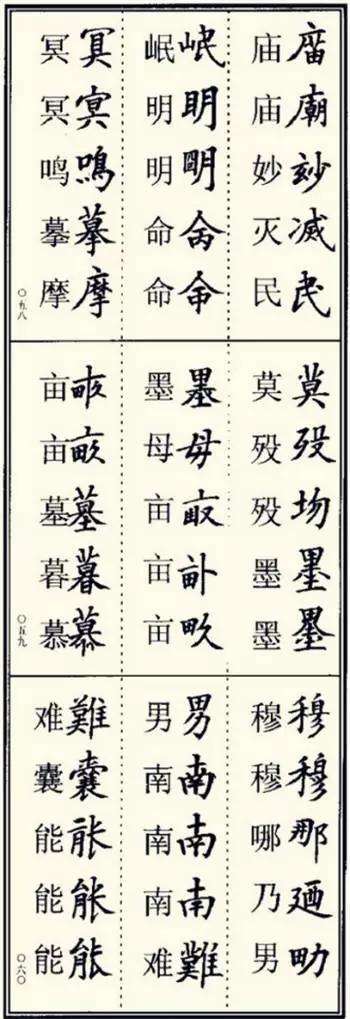 庙庿
庙廟
妙玅
灭滅
民民
岷岷
明眀
明朙
命
命
冥冥
冥㝠
鸣鳴
摹摹
摩摩
〇五八
莫莫
殁歿
殁圽
墨墨
墨墨
墨墨
母母
亩
亩
亩畝
亩
亩
墓墓
暮暮
慕慕
〇五九
穆穆
穆穆
哪那
乃廼
男
男男
南南
南南
南南
难難
难難
囊囊
能
能能
能
〇六〇